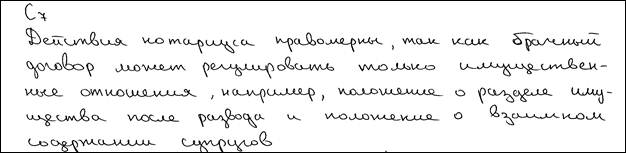 С7
Действия нотариуса правомерны, так как брачный
договор может регулировать только имуществен-
ные отношения, например, положение о разделе иму-
щества после развода и положение о взаимном
содержании супругов